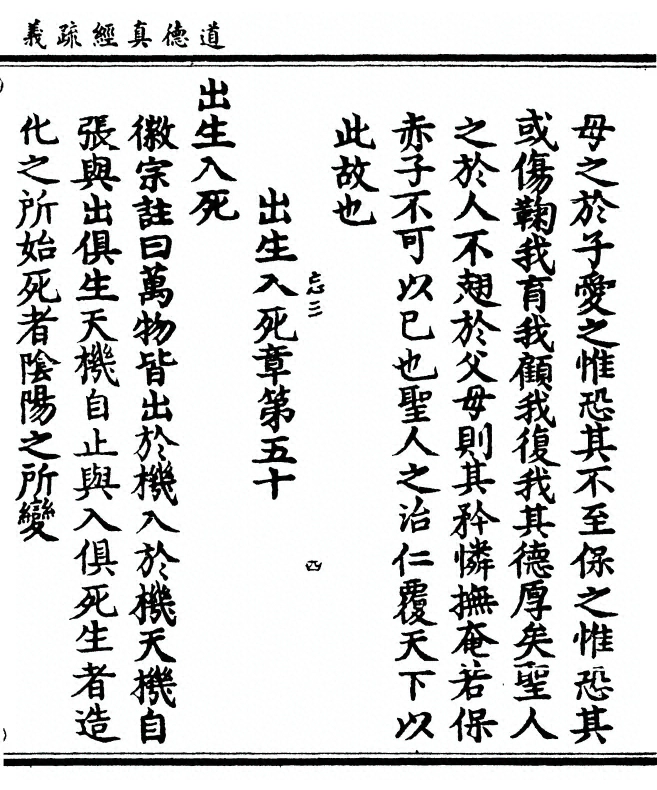 道德真經疏義
母之於子愛之惟恐其不至保之惟恐其
或傷鞠我育我顧我復我其德厚矣聖人
之於人不翅於父母則其矜憐撫奄若保
赤子不可以已也聖人之治仁覆天下以
此故也
忘三
四
出生入死章第五十
出生入死
徽宗註曰萬物皆出於機入於機天機自
張與出俱生天機自止與入俱死生者造
化之所始死者陰陽之所變